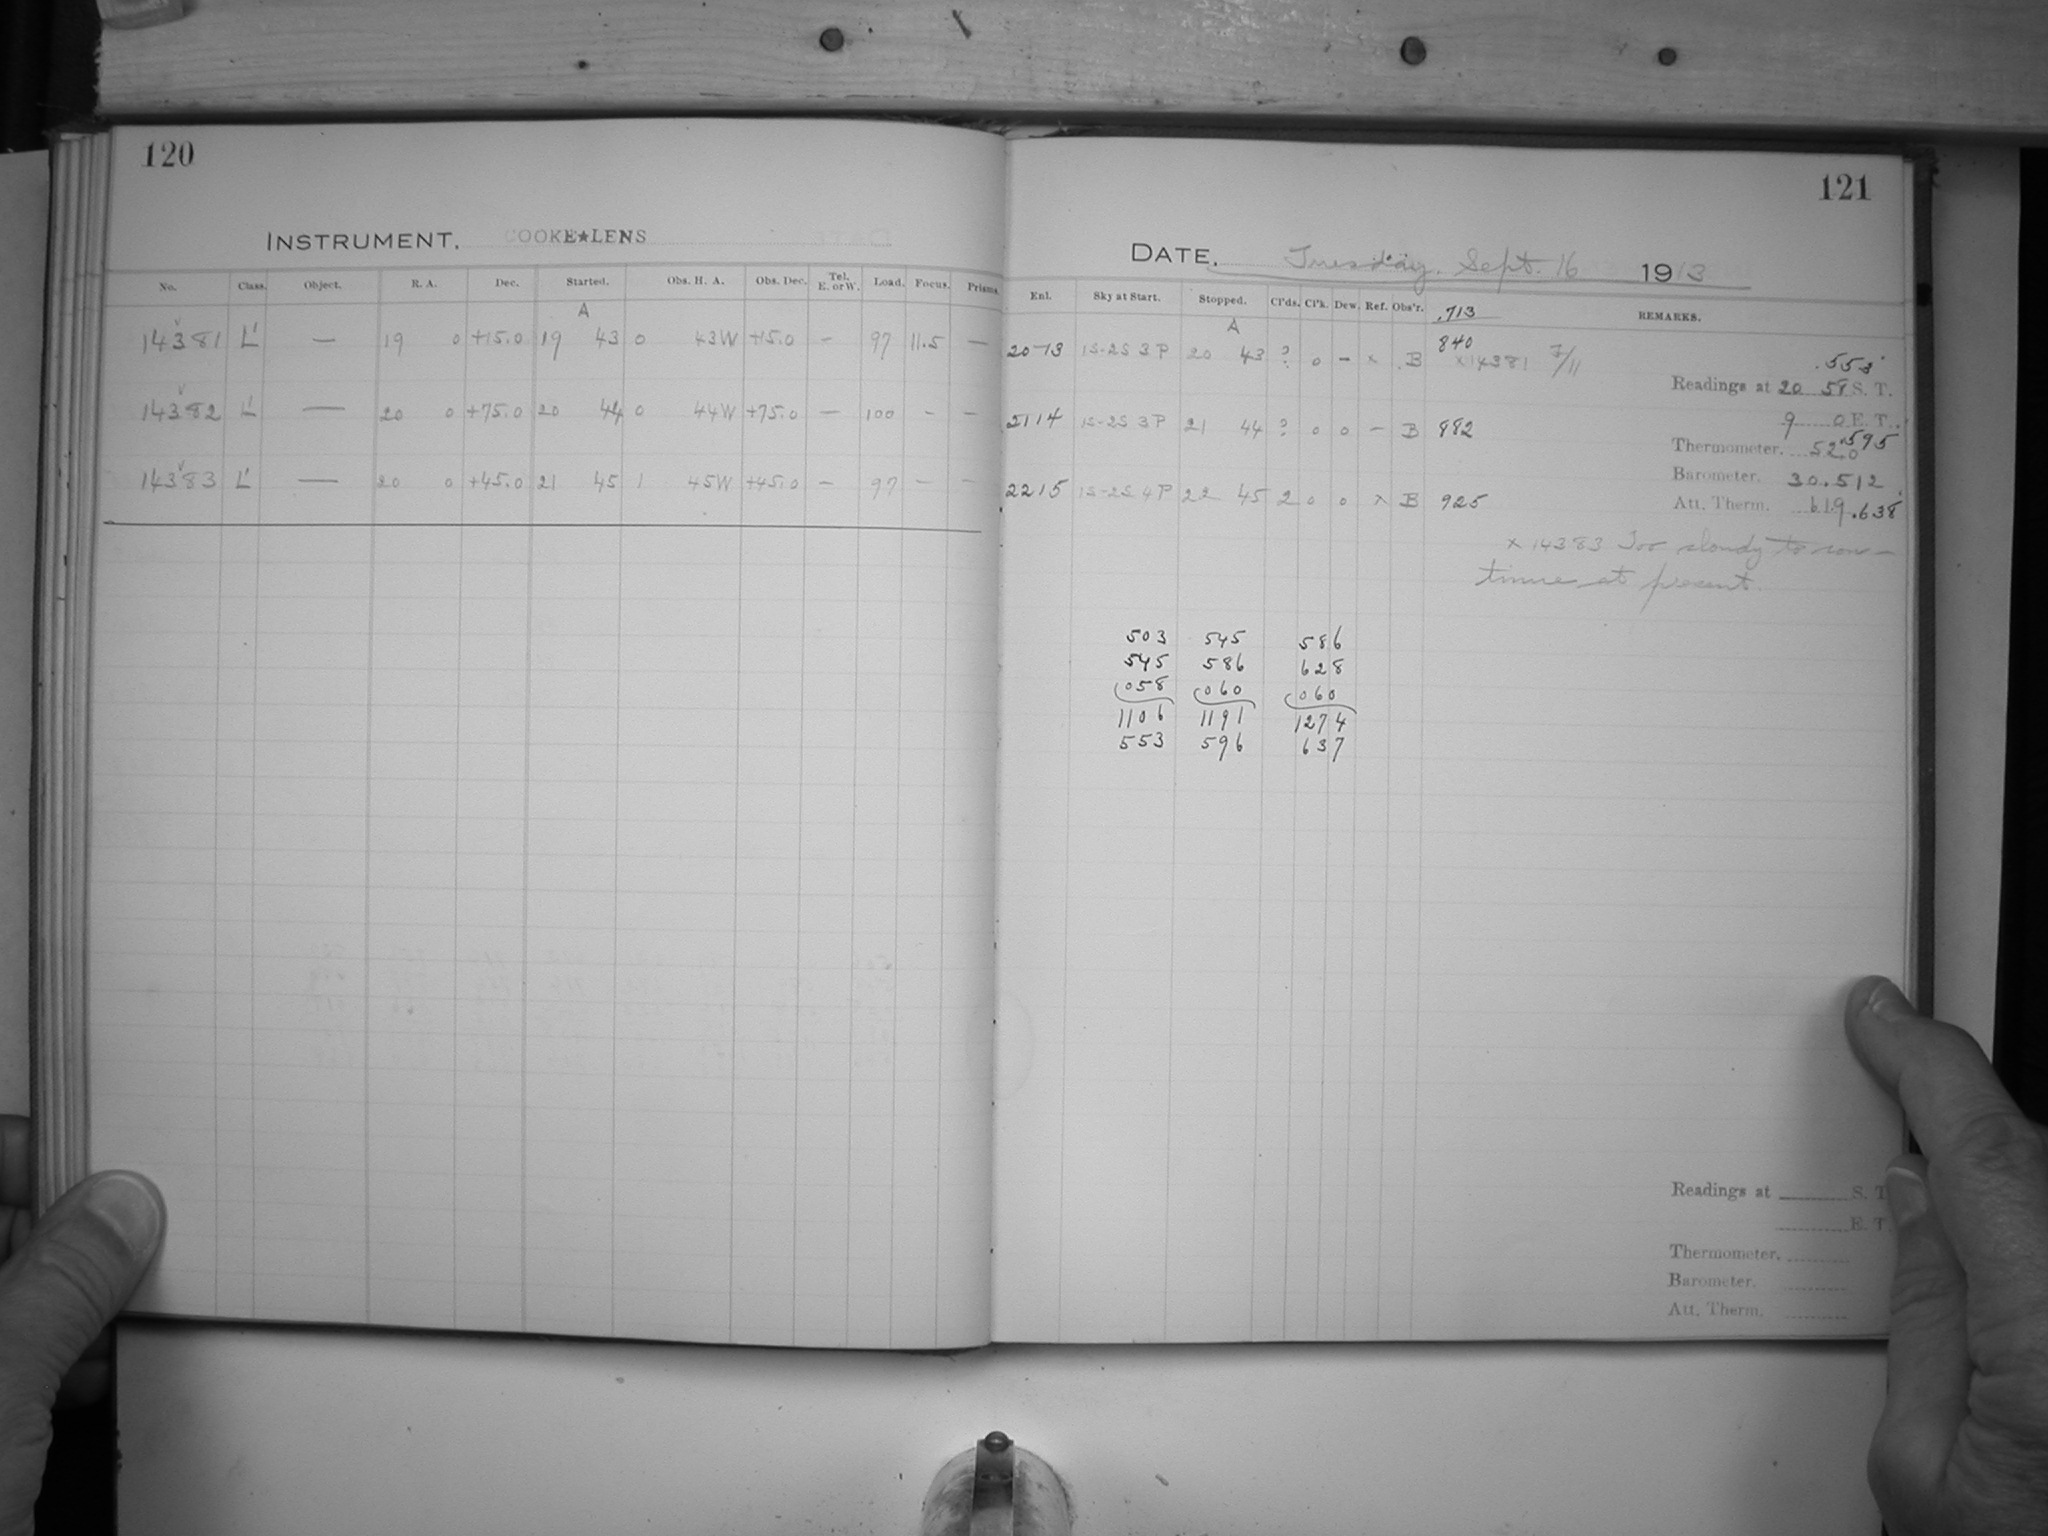 120
INSTRUMENT. COOKE★LENS
No. Class. Object. R. A. Dec. Started. Obs. H. A. Obs. Dec. Tel. E. or W. Load. Focus. Prisms.
A
14381 L' — 19 0 +15.0 19 43 0 43W +15.0 — 97 11.5 —
14382 L' — 20 0 +75.0 20 44 0 44W +75.0 — 100 - —
14383 L' — 20 0 +45.0 21 45 1 45W +45.0 — 97 - —
121
DATE. Tuesday. Sept. 16 1913
Enl. Sky at Start. Stopped. Cl'ds. Cl'k. Dew. Ref. Obs'r. .713 REMARKS.
A
20 13 1S-2S 3 P 20 43 ? 0 — x B 840 x 14381 .553
Readings at 20 58 S. T.
9 0 E. T.
2114 1S-2S 3 P 21 44 ? 0 0 — B 882
Thermometer. 52.0 .595
Barometer. 30.512
2215 1S-2S 4 P 22 45 2 0 0 x B 925
Att. Therm. 61.9 .638
x 14383 Too cloudy to con-
tinue at present.
503 545 586
545 586 628
058 060 060
1106 1191 1274
553 596 637
Readings at S. T.
E. T.
Thermometer.
Barometer.
Att. Therm.